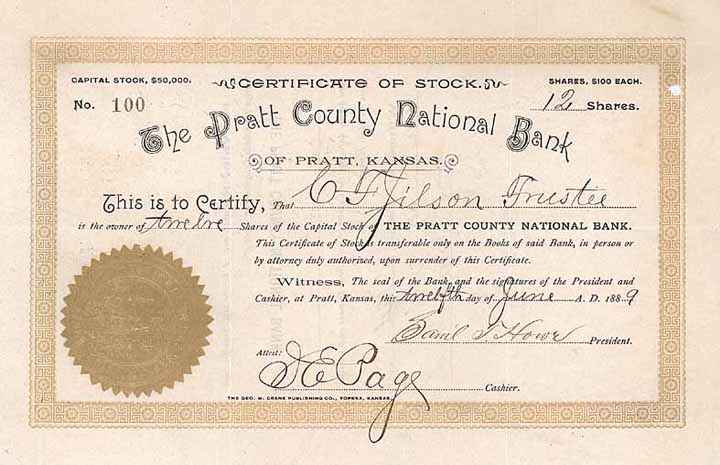 CAPITAL STOCK, $50,000. CERTIFICATE OF STOCK. SHARES, $100 EACH.
No. 100 12 Shares.
The Pratt County National Bank
OF PRATT, KANSAS.
This is to Certify, That C F Jilson Trustee
is the owner of twelve Shares of the Capital Stock of THE PRATT COUNTY NATIONAL BANK.
This Certificate of Stock is transferable only on the Books of said Bank, in person or
by attorney duly authorized, upon surrender of this Certificate.
Witness, The seal of the Bank and the signatures of the President and
Cashier, at Pratt, Kansas, this twelfth day of June A. D. 1889
Saml S Howe President.
Attest:
S E Page Cashier.
THE GEO. W. CRANE PUBLISHING CO., TOPEKA, KANSAS.